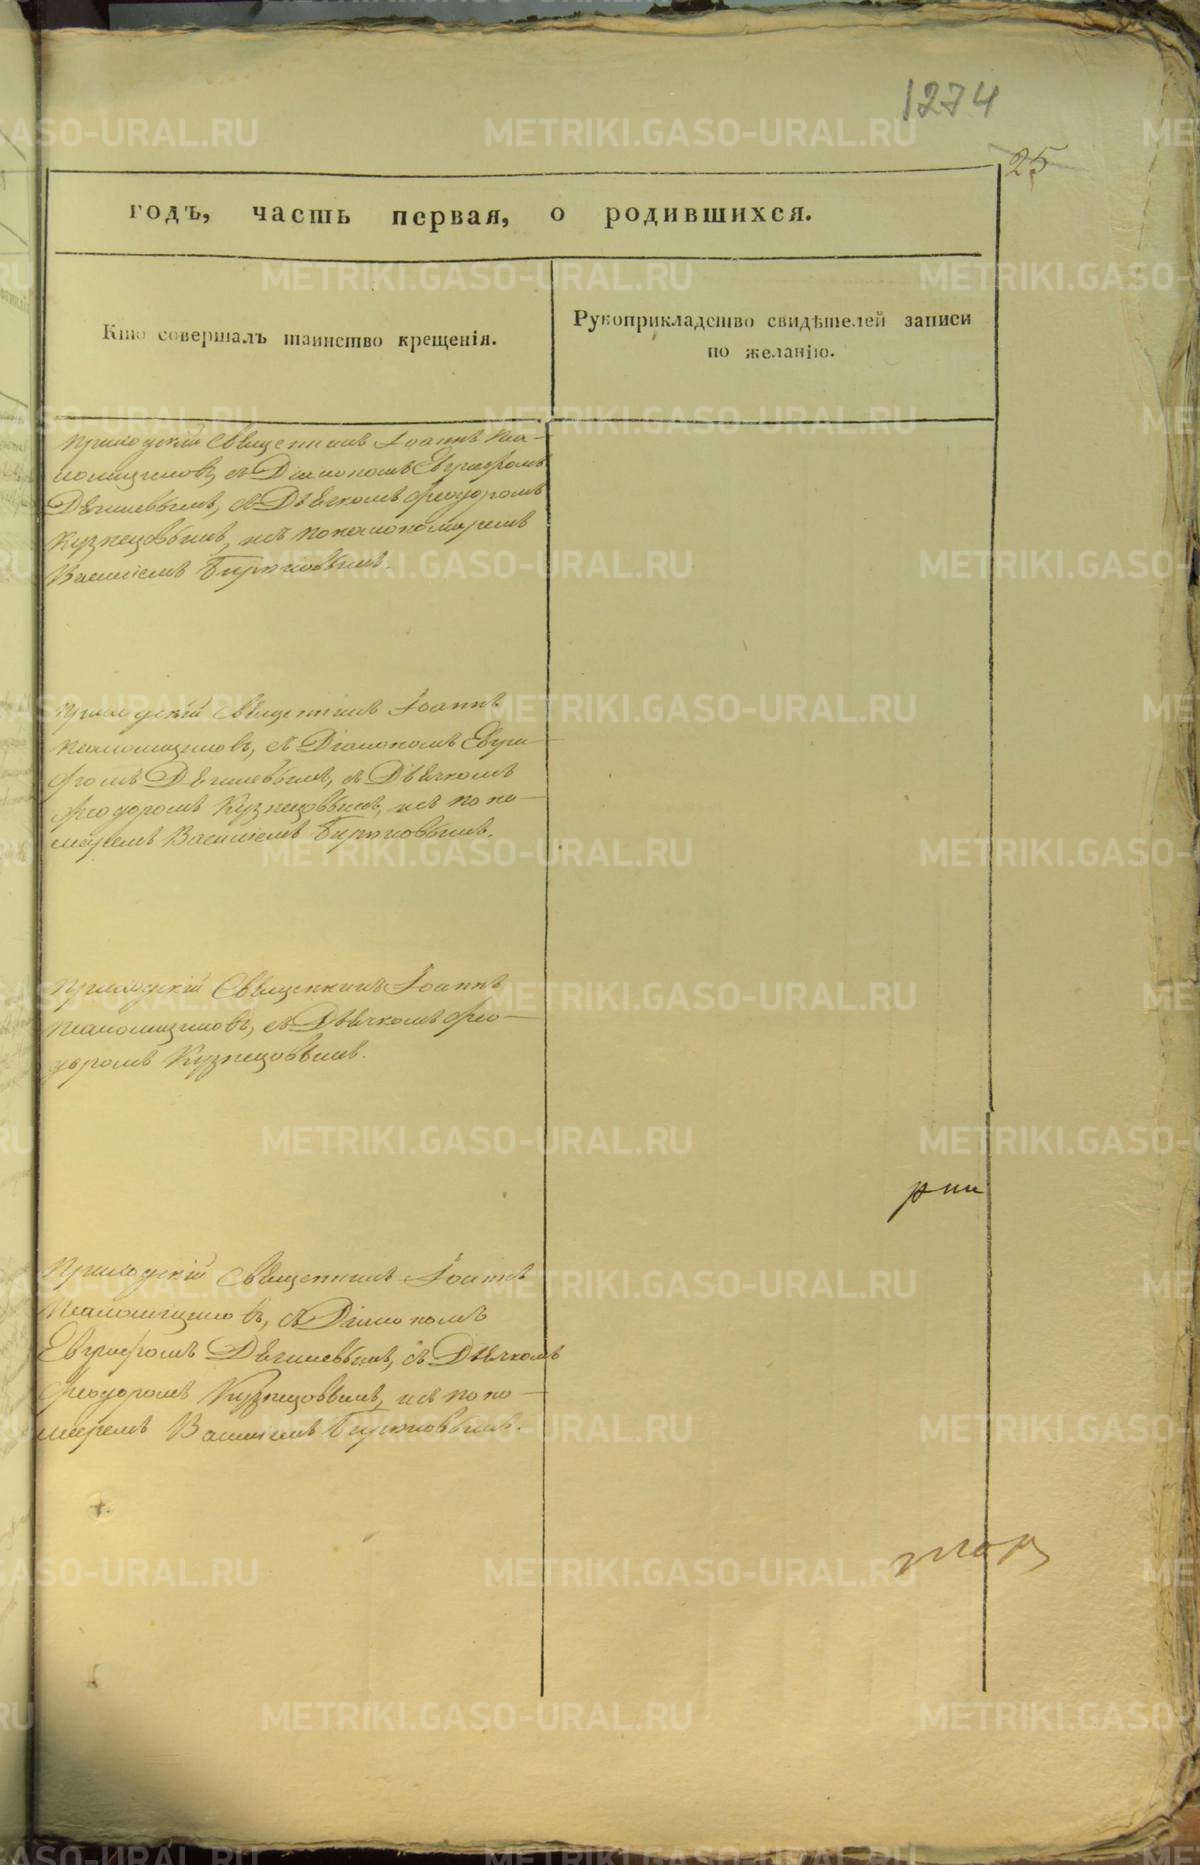 1274
25
годъ, часть первая, о родившихся.
Кто совершалъ таинство крещенія.
Рукоприкладство свидѣтелей записи
по желанію.
Приходскій Священникъ Іоаннъ
съ Діакономъ Евграфомъ
съ Дьячкомъ Феодоромъ
Кузнецовымъ, и съ
Василіемъ Бирюковымъ.
Приходскій Священникъ Іоаннъ
съ Діакономъ Евгра-
фомъ съ Дьячкомъ
Феодоромъ Кузнецовымъ, и съ поно-
маремъ Василіемъ Бирюковымъ.
Приходскій Священникъ Іоаннъ
съ Дьячкомъ Фео-
доромъ Кузнецовымъ.
Приходскій Священникъ Іоаннъ
съ Діакономъ
Евграфомъ съ Дьячкомъ
Феодоромъ Кузнецовымъ, и съ поно-
маремъ Василіемъ Бирюковымъ.
METRIKI.GASO-URAL.RU